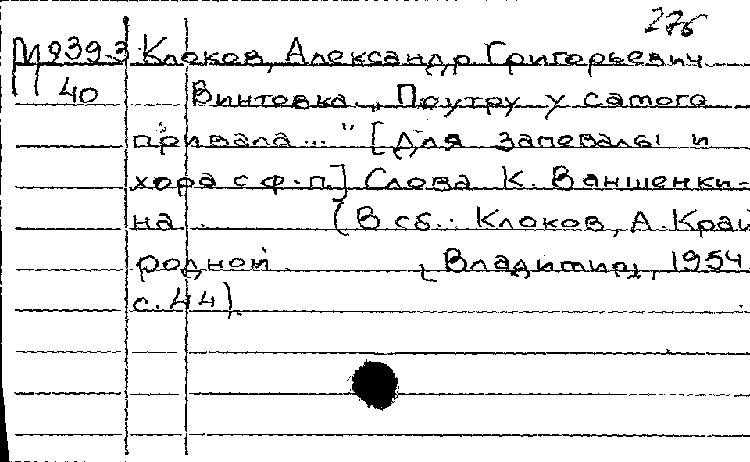 276
М 939-3 Клоков, Александр Григорьевич
40 Винтовка. „Поутру у самого
привала..." [Для запевалы и
хора с ф-п.] Слова К. Ваншенки-
на. (В сб.: Клоков, А. Край
родной. [Владимир], 1954
с. 44).